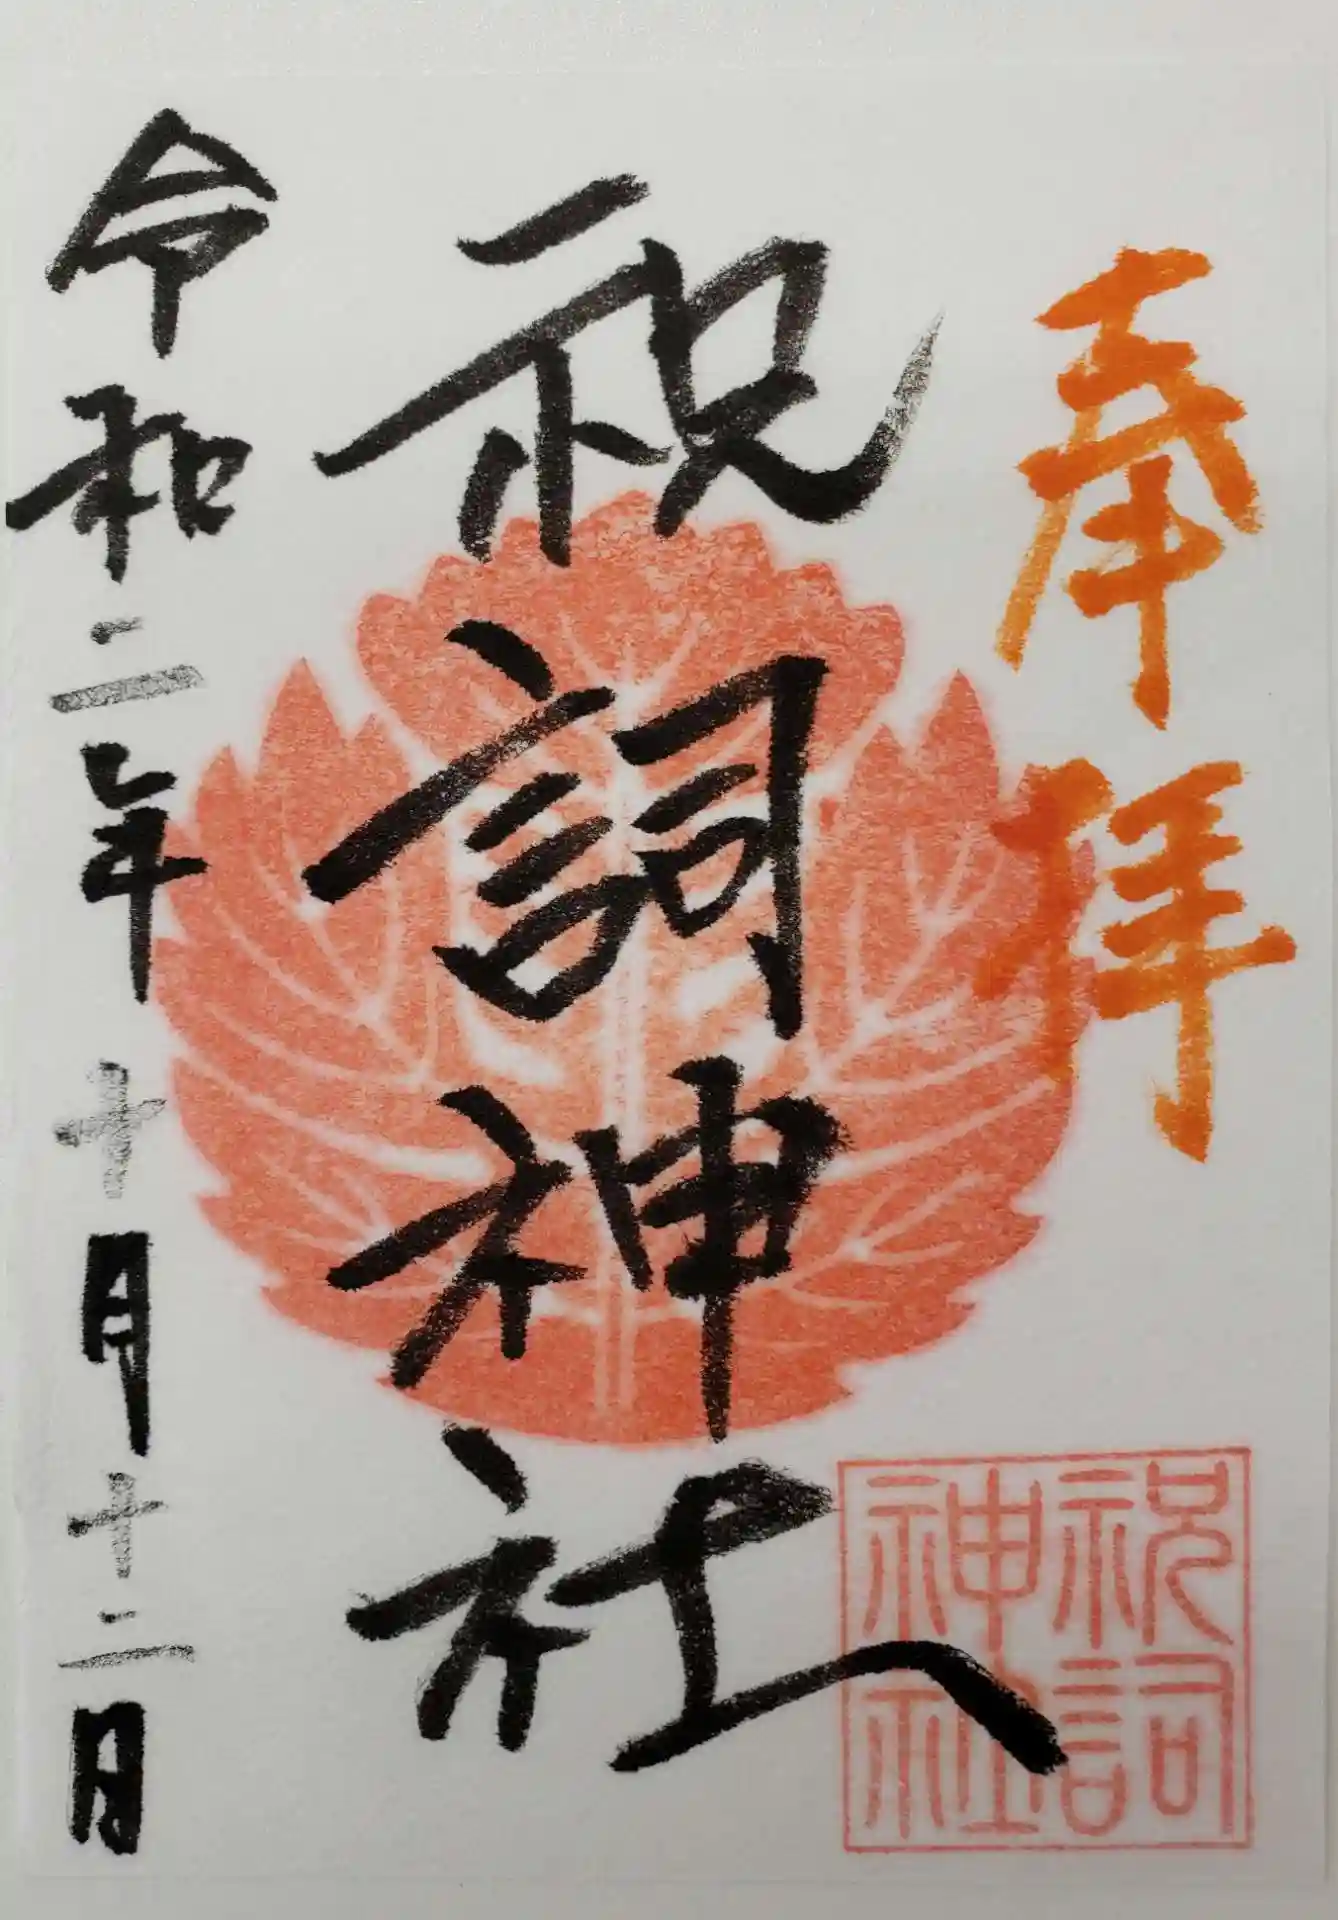 奉拝
祝詞神社
祝詞
神社
令和二年十月十二日